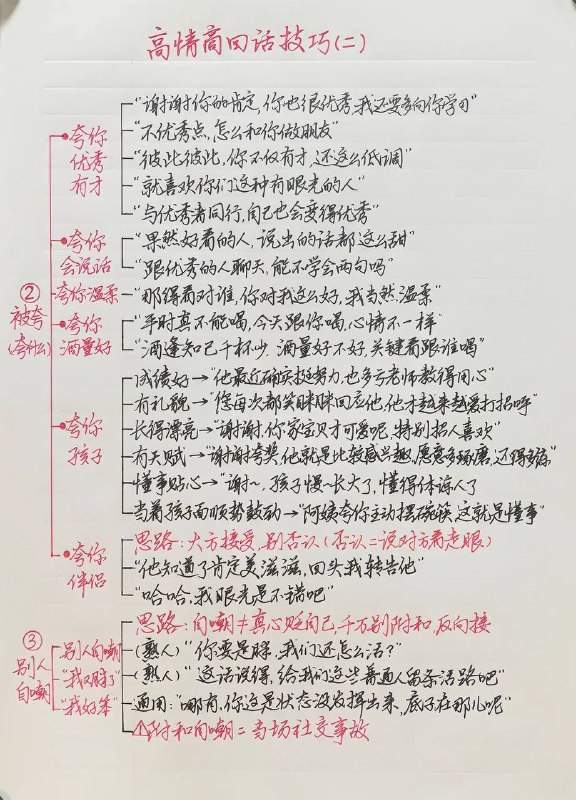 高情商回话技巧(二)
②被夸(夸什么)
夸你优秀有才
"谢谢你的肯定,你也很优秀,我还要多向你学习"
"不优秀点,怎么和你做朋友"
"彼此彼此,你不仅有才,还这么低调"
"就喜欢你们这种有眼光的人"
"与优秀者同行,自己也会变得优秀"
夸你会说话
"果然好看的人,说出的话都这么甜"
"跟优秀的人聊天,能不学会两句吗"
夸你温柔
"那得看对谁,你对我这么好,我当然温柔"
夸你酒量好
"平时真不能喝,今天跟你喝,心情不一样"
"酒逢知己千杯少,酒量好不好,关键看跟谁喝"
夸你孩子
成绩好→"他最近确实挺努力,也多亏老师教得用心"
有礼貌→"您每次都笑眯眯回应他,他才越来越爱打招呼"
长得漂亮→"谢谢,你家宝贝才可爱呢,特别招人喜欢"
有天赋→"谢谢夸奖,他就是比较感兴趣,愿意多琢磨,还得多练"
懂事贴心→"谢~,孩子慢~长大了,懂得体谅人了
当着孩子面顺势鼓励→"阿姨夸你主动摆碗筷,这就是懂事"
夸你伴侣
思路:大方接受,别否认(否认=说对方看走眼)
"他知道了肯定美滋滋,回头我转告他"
"哈哈,我眼光是不错吧"
③别人自嘲
别人自嘲"我又胖了""我好笨"
思路:自嘲≠真心贬自己,千万别附和,反向接
(熟人)"你要是胖,我们还怎么活?"
(熟人)"这话说得,给我们这些普通人留条活路吧"
通用:"哪有,你这是状态没发挥出来,底子在那儿呢"
附和自嘲=当场社交事故